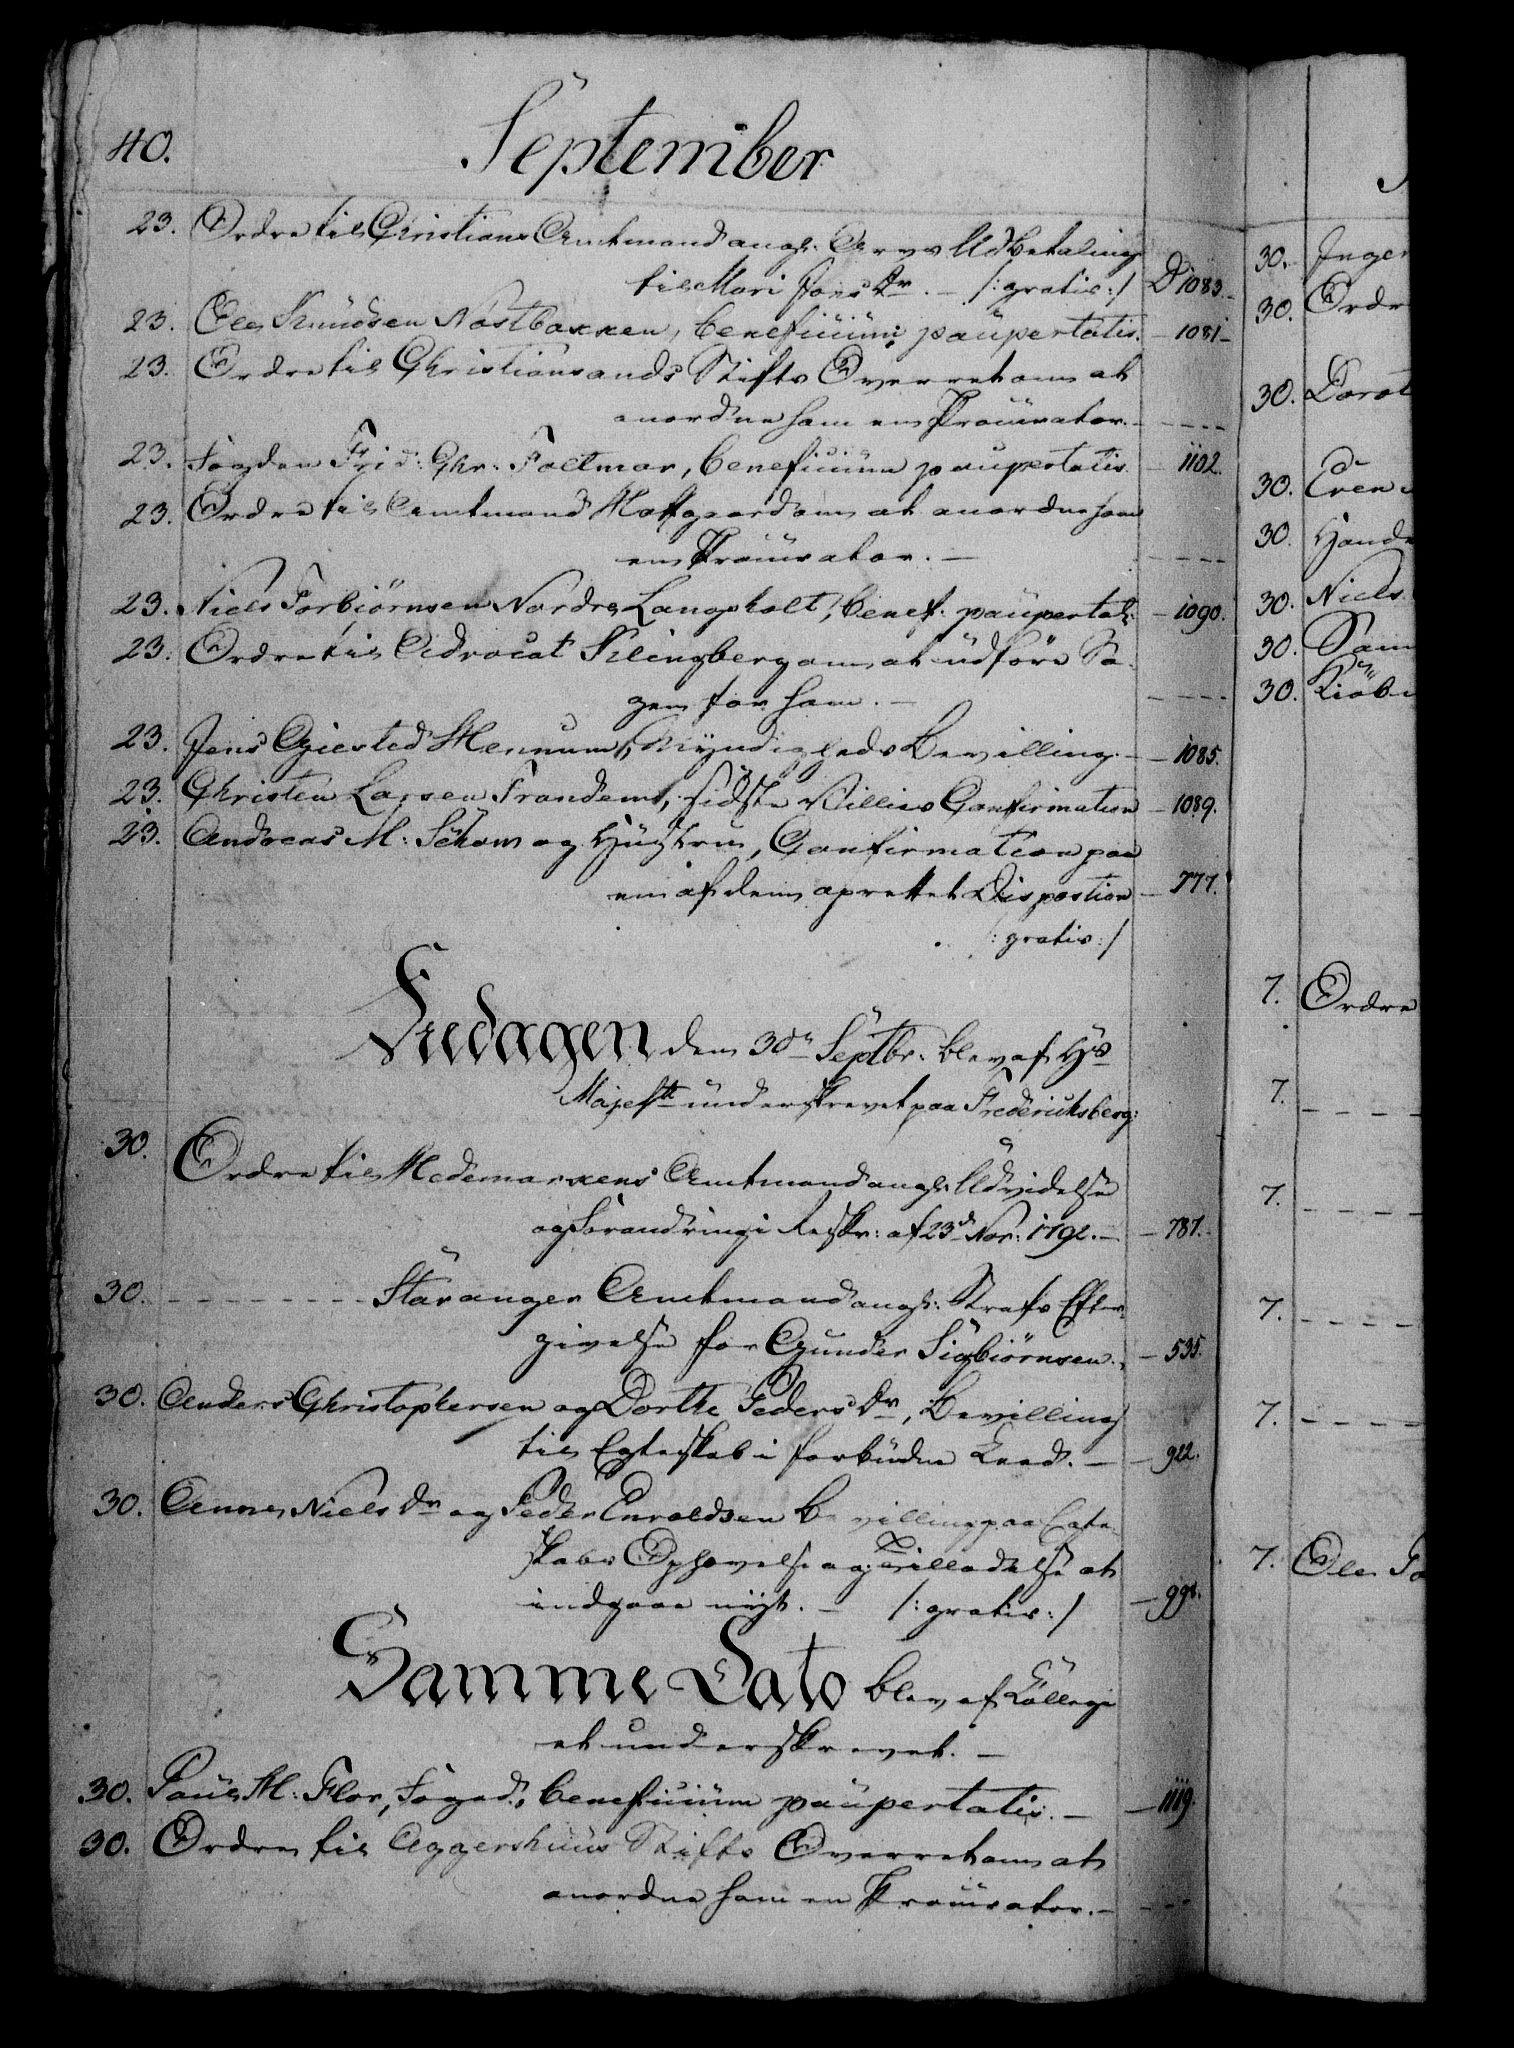 40.
September
23. Ordre til Christians Amtmand angl. Arvs Udbetaling
til Mari Jons Dr. — /: gratis :/ D 1083.
23. Ole Knudsen Nostbakken, beneficium paupertatis. — 1081 —
23. Ordre til Christiansands Stifts Overret om at
anordne ham en Procurator. — — — —
23. Fogden Frid: Chr: Foltmar, beneficium paupertatis. — 1102.
23. Ordre til Amtmand Hofgaard om at anordne ham
en Procurator. — — — — —
23. Niels Torbiörnsen Nordre Langholt, benef: paupertat: — 1090.
23. Ordre til Advocat Klingberg om at udföre Sa-
gen for ham. — — — — —
23. Jens Giested Mennum, Myndigheds Bevilling. — 1085.
23. Christen Larsen Trandem, sidste Villies Confirmation — 1089.
23. Andreas M: Schow og Hustrue, Confirmation paa
en af dem oprettet Dispostion — 777.
/: gratis :/
Fredagen den 30te Septbr. blev af Hs
Majestt underskrevet paa Fredericksberg:
30. Ordre til Hedemarkens Amtmand angl. Udvidelse
og Forandring i Reskr: af 23d Nov: 1792. — — 787.
30. — — — — — — — Stavanger Amtmand angl: Strafs Efter-
givelse for Gunder Sigbiörnsen. — 535.
30. Anders Christophersen og Dorthe Peders Dr, Bevilling
til Egteskab i forbudne Leed. — — 922.
30. Anne Niels Dr og Peder Enroldsen Bevilling paa Egte-
skabs Ophævelse og Tilladelse at
indgaae nyt. — /: gratis :/ — 998.
Samme Dato blev af Collegi
et underskrevet. —
30. Paul M: Flor, Foged, beneficium paupertatis. — — 1119.
30. Ordre til Aggershuus Stifts Overret om at
anordne ham en Procurator. — — — —
30. Inger
30. Ordr
30. Dorot
30. Even
30. Hande
30. Niels
30. Sam
30. Kiöb
7. Ordre
7. — — — —
7. — — — —
7. — — — —
7. — — — —
7. Ole